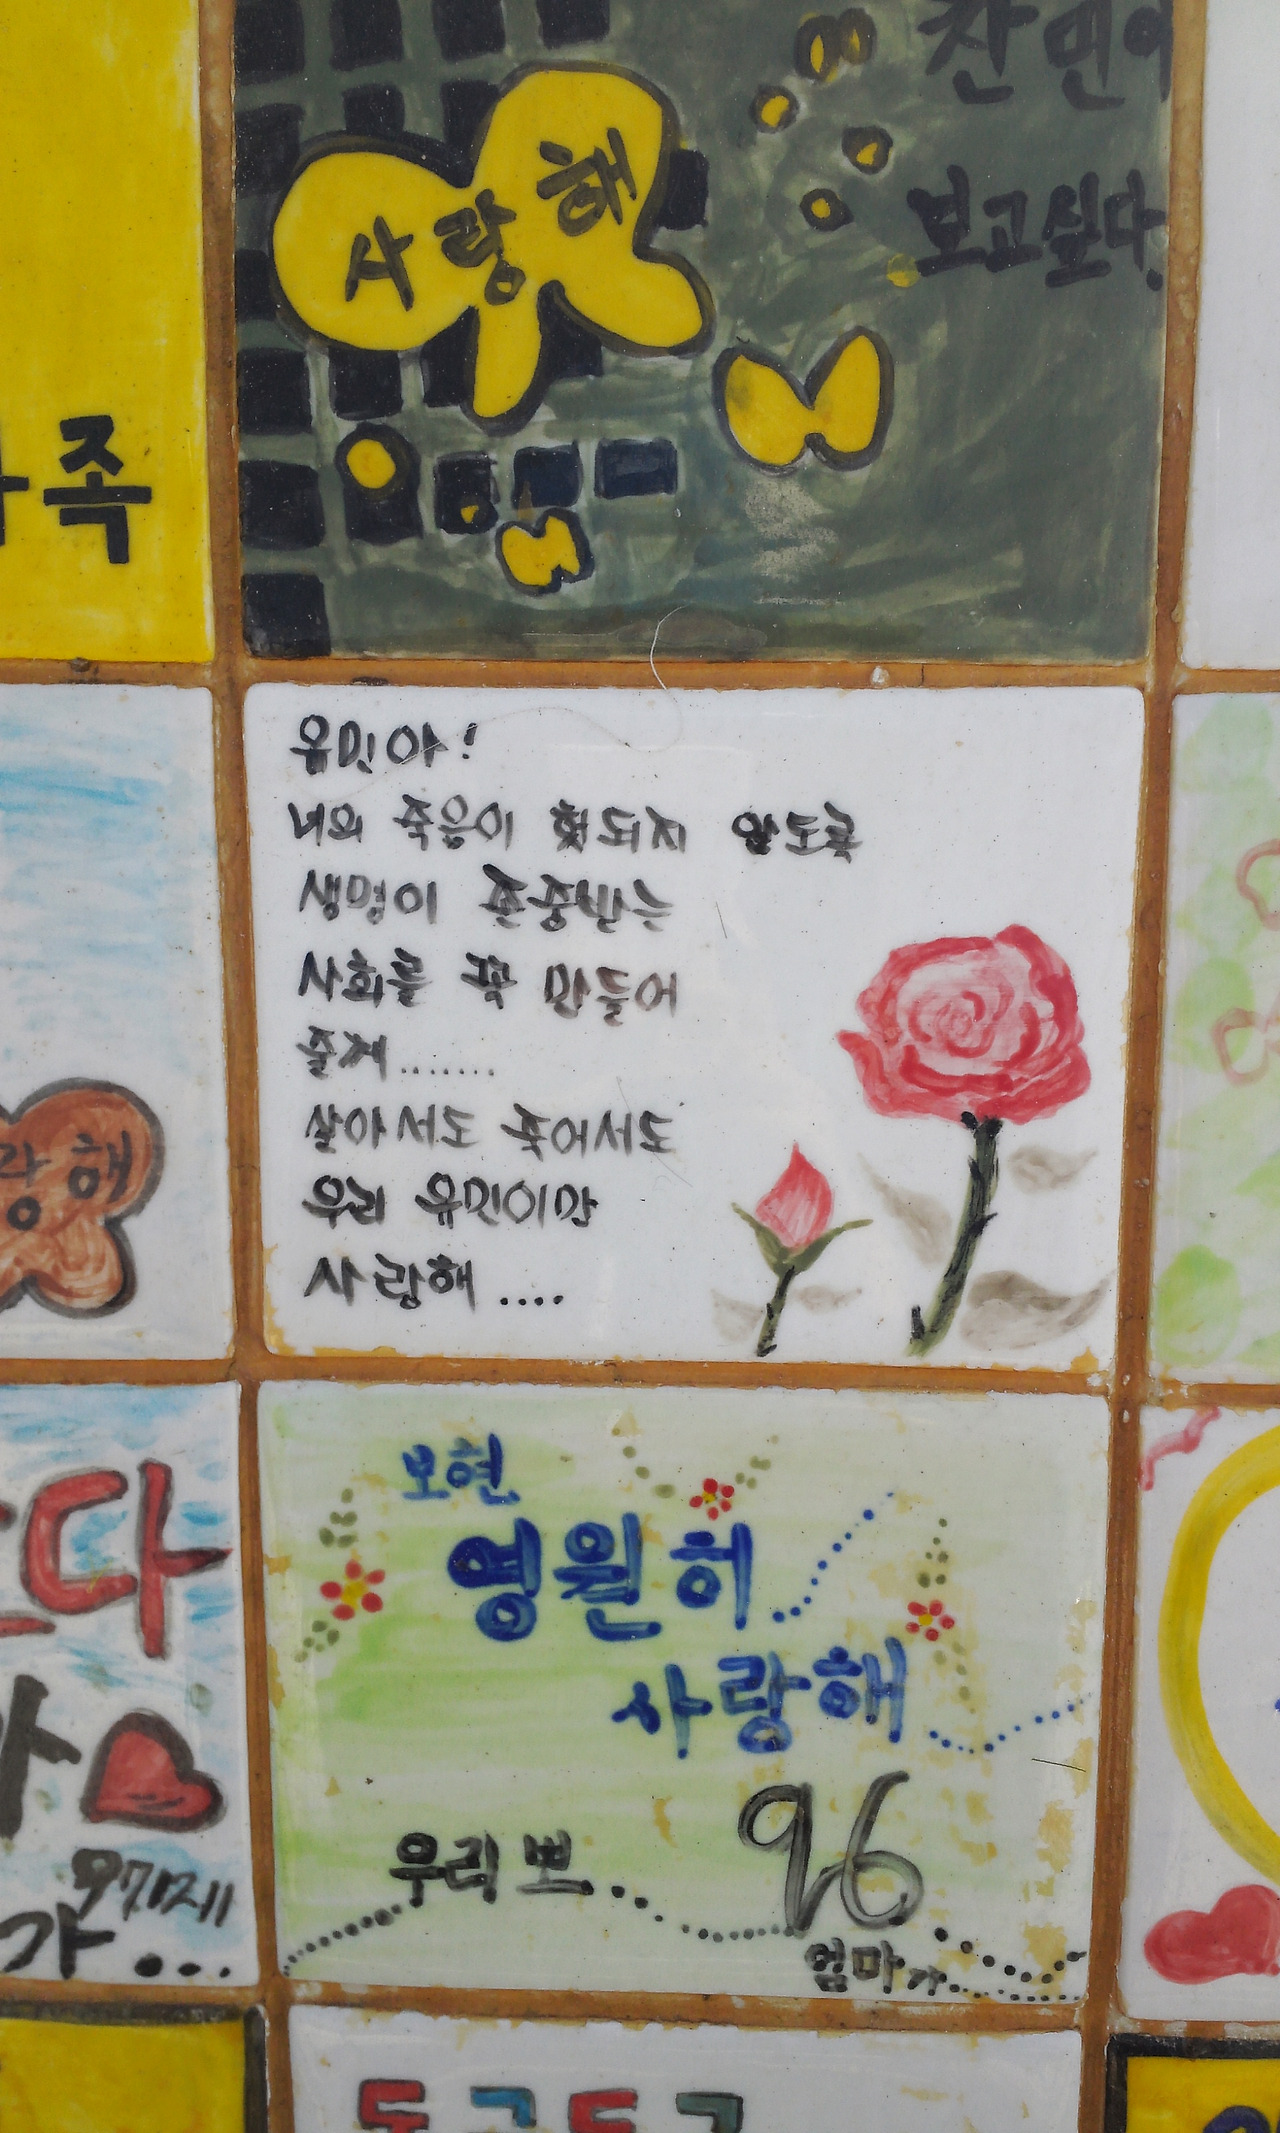 찬민아
보고싶다.
사랑해
족
유민아!
너의 죽음이 헛되지 않도록
생명이 존중받는
사회를 꼭 만들어
줄게.......
살아서도 죽어서도
우리 유민이만
사랑해....
랑해
다
보현
영원히
사랑해
우리 뽀...
96
엄마가
971211
가...